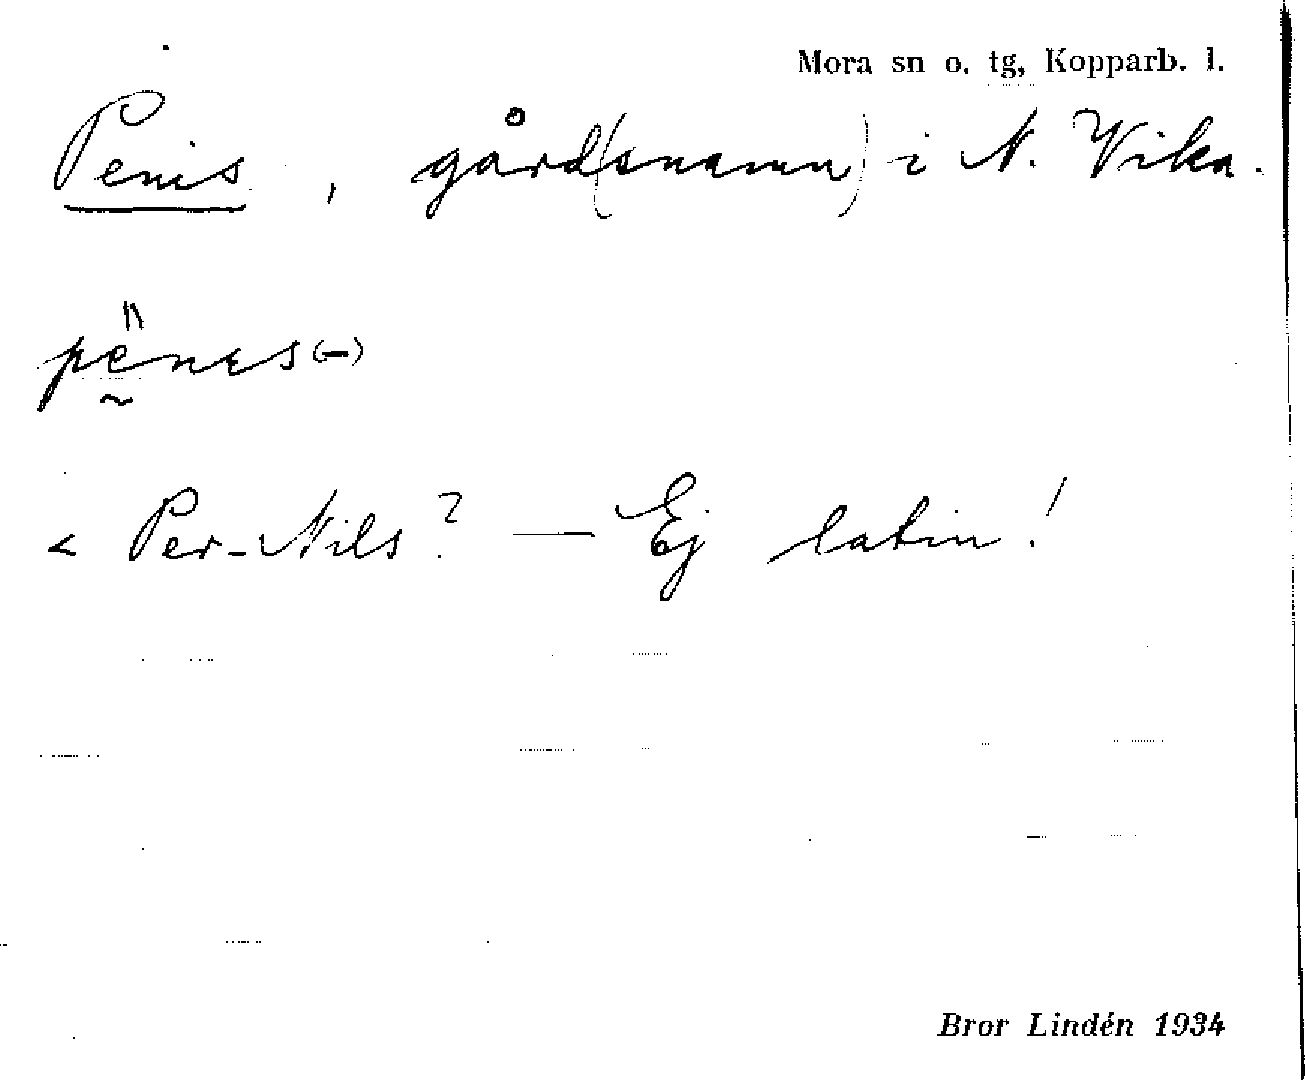 Mora sn o. tg, Kopparb. l.
Penis, gård(snamn) i N. Vika.
pḛ̎nes(-)
< Per-Nils? — Ej latin!
Bror Lindén 1934